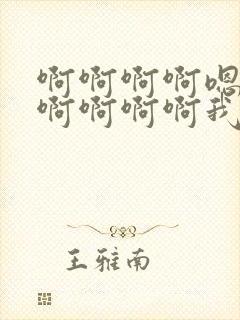 啊啊啊啊嗯
啊啊啊啊我
王雅南